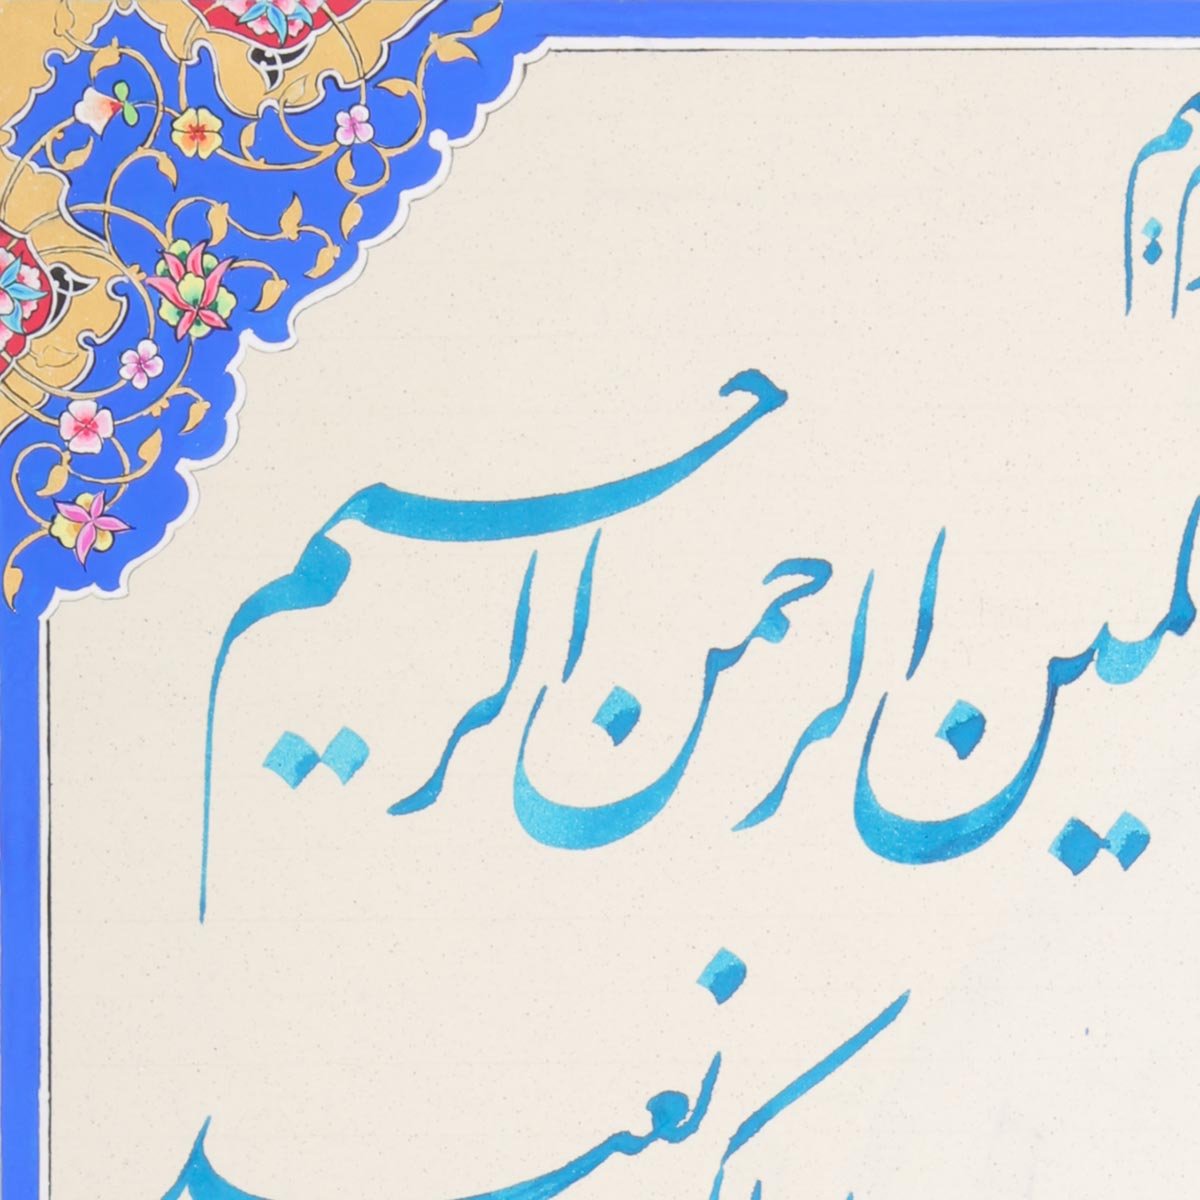 لمین الرحمن الرحیم
نعبد